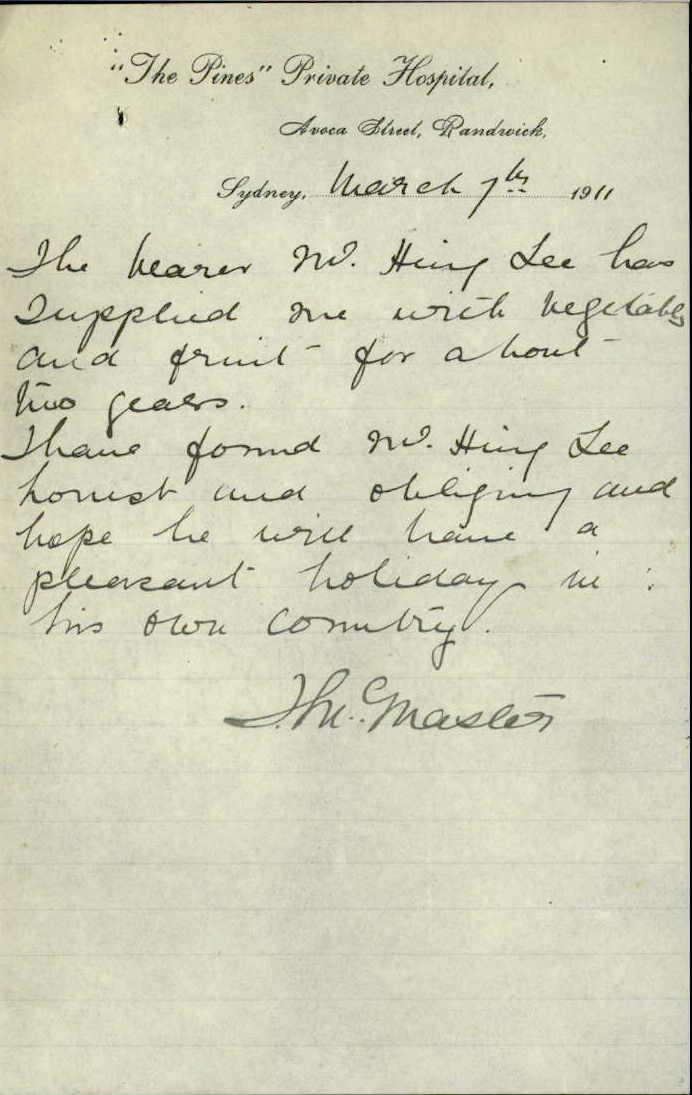 "The Pines" Private Hospital,
Avoca Street, Randwick.
Sydney, March 7th 1911
The bearer Mr. Hing Lee has
supplied me with vegetables
and fruit for about
two years.
I have found Mr. Hing Lee
honest and obliging and
hope he will have a
pleasant holiday in
his own country.
McMaster